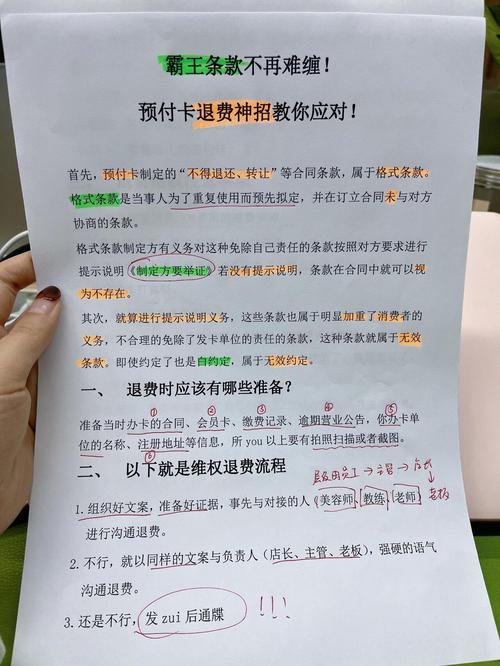 霸王条款不再难缠！
预付卡退费神招教你应对！
首先，预付卡制定的“不得退还、转让”等合同条款，属于格式条款。
格式条款是当事人为了重复使用而预先拟定，并在订立合同未与对方
协商的条款。
格式条款制定方有义务对这种免除自己责任的条款按照对方要求进行
提示说明《制定方要举证》若没有提示说明，条款在合同中就可以视
为不存在。
其次，就算进行提示说明义务，这些条款也属于明显加重了消费者的
义务，不合理的免除了发卡单位的责任的条款，这种条款就属于无效
条款。即使约定了也是白约定，属于无效约定。
一、 退费时应该有哪些准备？
① ② ③ ④ ⑤
准备当时办卡的合同、会员卡、缴费记录、逾期营业公告，你办卡单
位的名称、注册地址等信息，所 you 以上要有拍照扫描或者截图。
⑥
二、 以下就是维权退费流程
员工 → 主管 → 店长
↓
老板
1. 组织好文案，准备好证据，事先与对接的人（美容师、教练、老师）
进行沟通退费。
2. 不行，就以同样的文案与负责人（店长、主管、老板），强硬的语气
沟通退费。
3. 还是不行，发 zui 后通牒 !!!